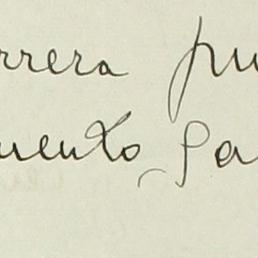 rrera pu
uento, Sa